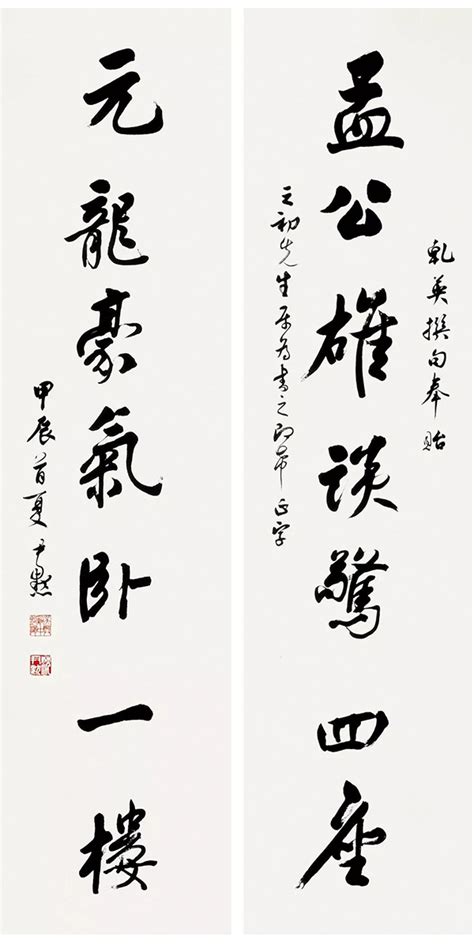 英撰句奉貽
孟公雄談驚四座
之初先生屬為書之即希正字
元龍豪氣卧一樓
甲辰首夏尹默